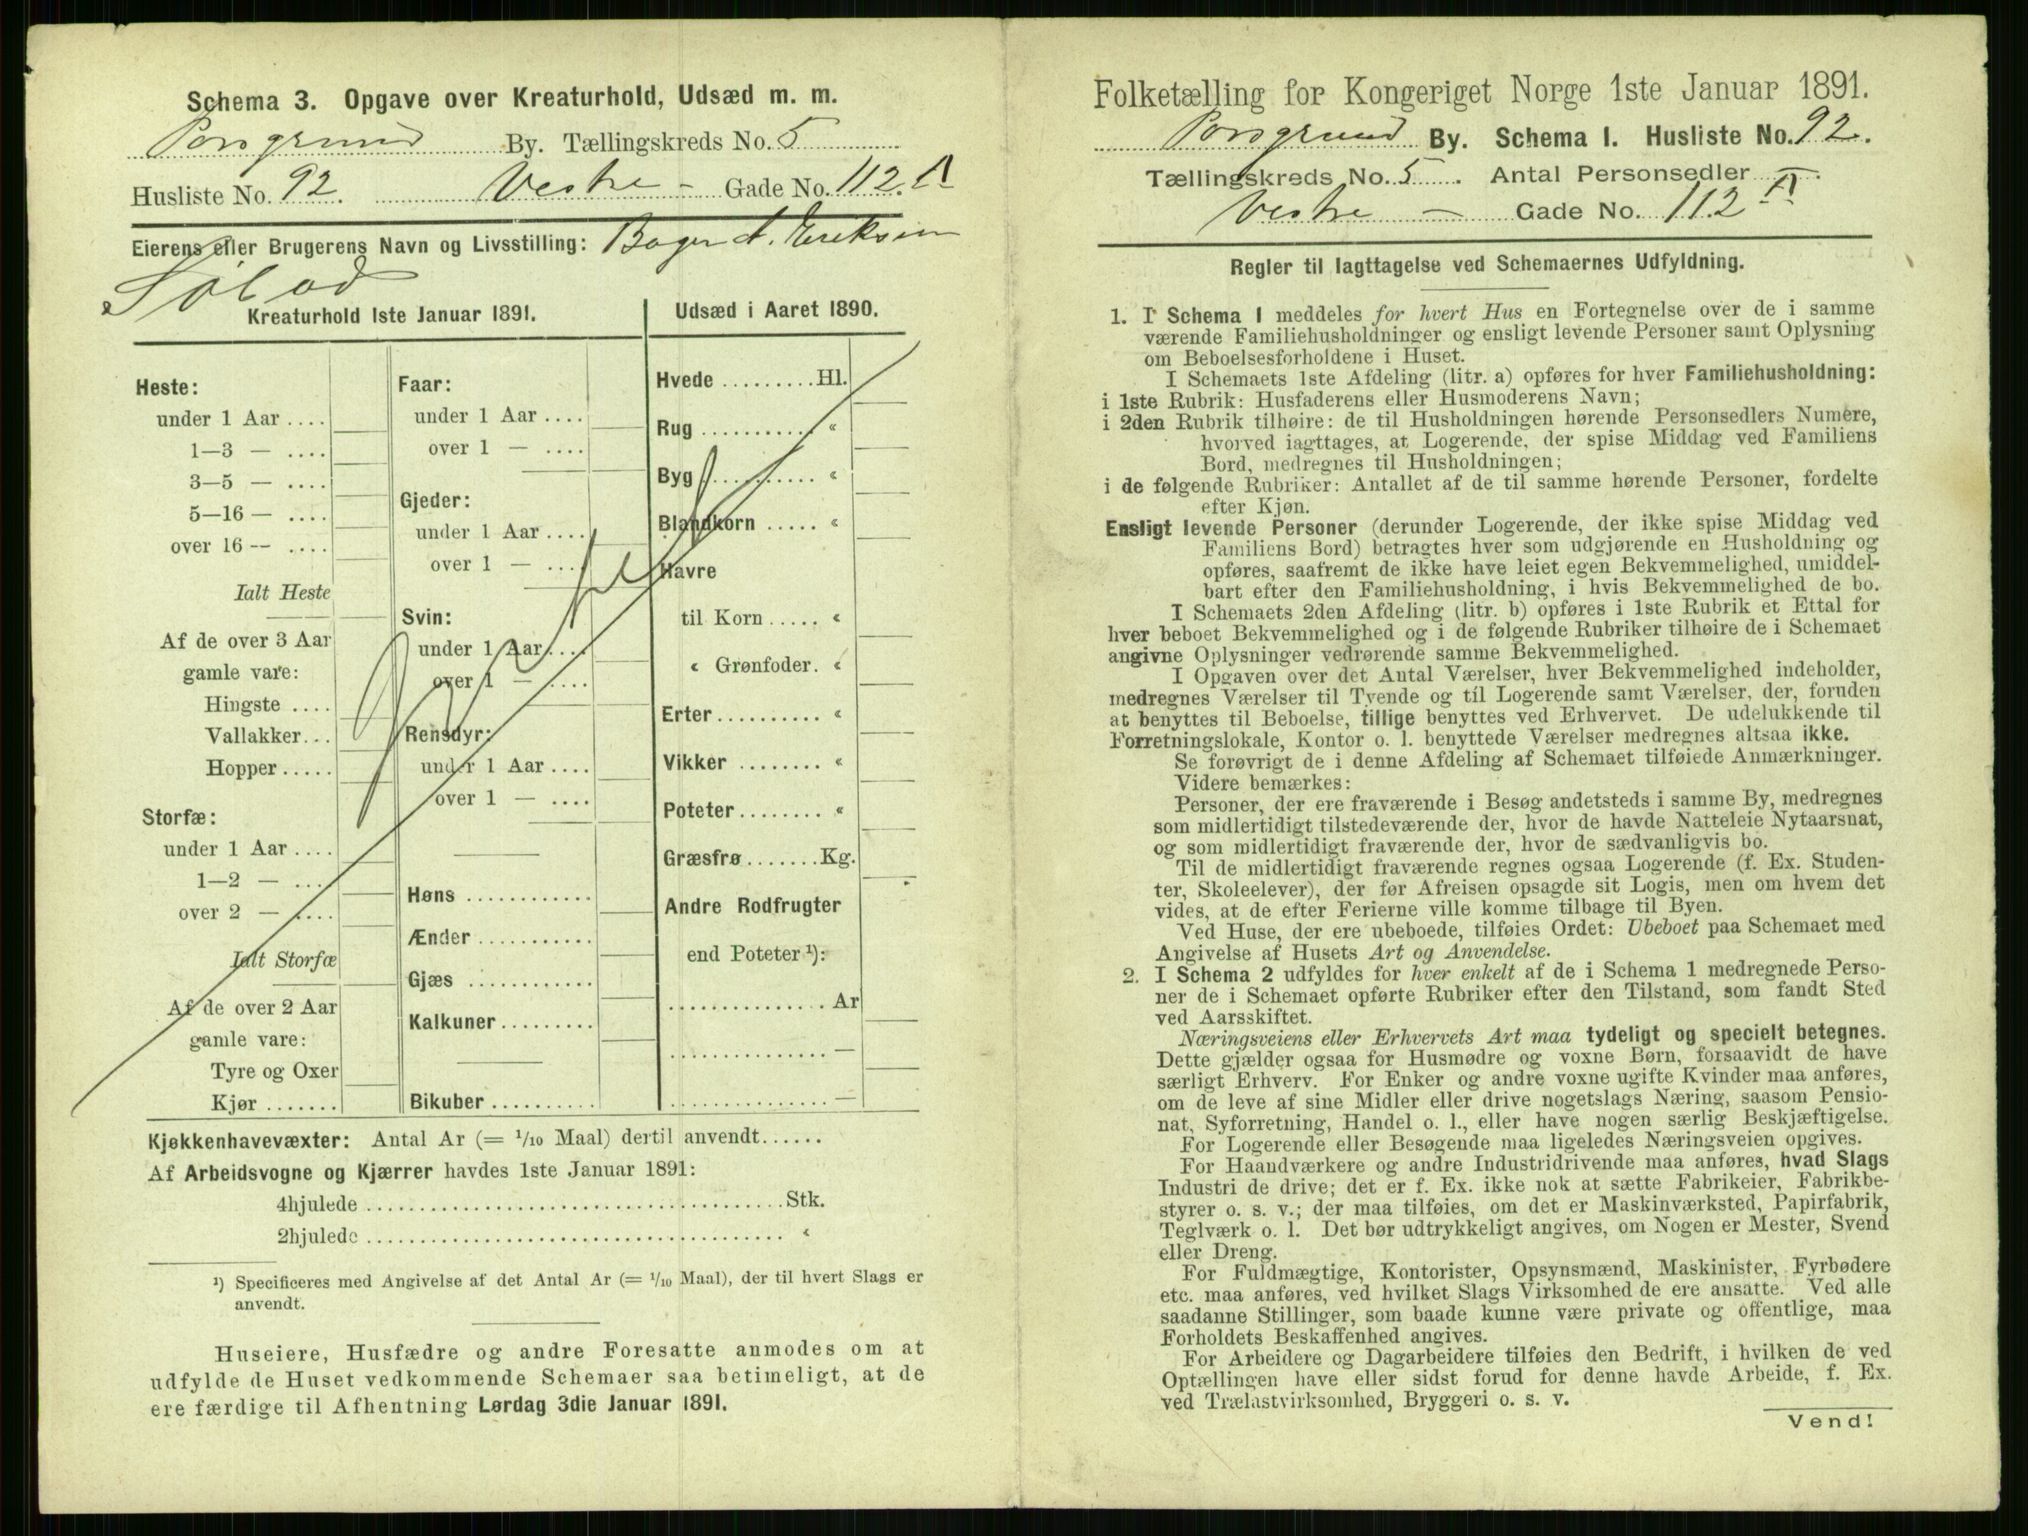 Schema 3. Opgave over Kreaturhold, Udsæd m. m.
Porsgrund By. Tællingskreds No. 5
Husliste No. 92. Vestre - Gade No. 112. II
Eierens eller Brugerens Navn og Livsstilling: Bager A. Eriksen
Kreaturhold 1ste Januar 1891.
Heste:
under 1 Aar ....
1—3 — ....
3—5 — ....
5—16 — ....
over 16 — ....
Ialt Heste
Af de over 3 Aar
gamle vare:
Hingste ....
Vallakker...
Hopper.....
Storfæ:
under 1 Aar ....
1—2 — ....
over 2 — ....
Ialt Storfæ
Af de over 2 Aar
gamle vare:
Tyre og Oxer
Kjør .......
Faar:
under 1 Aar ....
over 1 — ....
Gjeder:
under 1 Aar ....
over 1 — ....
Svin:
under 1 Aar ....
over 1 — ....
Rensdyr:
under 1 Aar ....
over 1 — ....
Høns ............
Ænder ...........
Gjæs ............
Kalkuner.........
Bikuber ..........
Udsæd i Aaret 1890.
Hvede .........Hl.
Rug ........... «
Byg ........... «
Blandkorn ..... «
Havre
til Korn ..... «
« Grønfoder. «
Erter.......... «
Vikker ........ «
Poteter........ «
Græsfrø.......Kg.
Andre Rodfrugter
end Poteter ¹):
............... Ar
............... —
............... —
Kjøkkenhavevæxter: Antal Ar (= 1/10 Maal) dertil anvendt......
Af Arbeidsvogne og Kjærrer havdes 1ste Januar 1891:
4hjulede ....................................Stk.
2hjulede .................................... «
¹) Specificeres med Angivelse af det Antal Ar (= 1/10 Maal), der til hvert Slags er
anvendt.
Huseiere, Husfædre og andre Foresatte anmodes om at
udfylde de Huset vedkommende Schemaer saa betimeligt, at de
ere færdige til Afhentning Lørdag 3die Januar 1891.
Folketælling for Kongeriget Norge 1ste Januar 1891.
Porsgrund By. Schema 1. Husliste No. 92.
Tællingskreds No. 5. Antal Personsedler .
Vestre - Gade No. 112 II
Regler til Iagttagelse ved Schemaernes Udfyldning.
1. I Schema 1 meddeles for hvert Hus en Fortegnelse over de i samme
værende Familiehusholdninger og ensligt levende Personer samt Oplysning
om Beboelsesforholdene i Huset.
I Schemaets 1ste Afdeling (litr. a) opføres for hver Familiehusholdning:
i 1ste Rubrik: Husfaderens eller Husmoderens Navn;
i 2den Rubrik tilhøire: de til Husholdningen hørende Personsedlers Numere,
hvorved iagttages, at Logerende, der spise Middag ved Familiens
Bord, medregnes til Husholdningen;
i de følgende Rubriker: Antallet af de til samme hørende Personer, fordelte
efter Kjøn.
Ensligt levende Personer (derunder Logerende, der ikke spise Middag ved
Familiens Bord) betragtes hver som udgjørende en Husholdning og
opføres, saafremt de ikke have leiet egen Bekvemmelighed, umiddel-
bart efter den Familiehusholdning, i hvis Bekvemmelighed de bo.
I Schemaets 2den Afdeling (litr. b) opføres i 1ste Rubrik et Ettal for
hver beboet Bekvemmelighed og i de følgende Rubriker tilhøire de i Schemaet
angivne Oplysninger vedrørende samme Bekvemmelighed.
I Opgaven over det Antal Værelser, hver Bekvemmelighed indeholder,
medregnes Værelser til Tyende og til Logerende samt Værelser, der, foruden
at benyttes til Beboelse, tillige benyttes ved Erhvervet. De udelukkende til
Forretningslokale, Kontor o. l. benyttede Værelser medregnes altsaa ikke.
Se forøvrigt de i denne Afdeling af Schemaet tilføiede Anmærkninger.
Videre bemærkes:
Personer, der ere fraværende i Besøg andetsteds i samme By, medregnes
som midlertidigt tilstedeværende der, hvor de havde Natteleie Nytaarsnat,
og som midlertidigt fraværende der, hvor de sædvanligvis bo.
Til de midlertidigt fraværende regnes ogsaa Logerende (f. Ex. Studen-
ter, Skoleelever), der før Afreisen opsagde sit Logis, men om hvem det
vides, at de efter Ferierne ville komme tilbage til Byen.
Ved Huse, der ere ubeboede, tilføies Ordet: Ubeboet paa Schemaet med
Angivelse af Husets Art og Anvendelse.
2. I Schema 2 udfyldes for hver enkelt af de i Schema 1 medregnede Perso-
ner de i Schemaet opførte Rubriker efter den Tilstand, som fandt Sted
ved Aarsskiftet.
Næringsveiens eller Erhvervets Art maa tydeligt og specielt betegnes.
Dette gjælder ogsaa for Husmødre og voxne Børn, forsaavidt de have
særligt Erhverv. For Enker og andre voxne ugifte Kvinder maa anføres,
om de leve af sine Midler eller drive nogetslags Næring, saasom Pensio-
nat, Syforretning, Handel o. l., eller have nogen særlig Beskjæftigelse.
For Logerende eller Besøgende maa ligeledes Næringsveien opgives.
For Haandværkere og andre Industridrivende maa anføres, hvad Slags
Industri de drive; det er f. Ex. ikke nok at sætte Fabrikeier, Fabrikbe-
styrer o. s. v.; der maa tilføies, om det er Maskinværksted, Papirfabrik,
Teglværk o. l. Det bør udtrykkeligt angives, om Nogen er Mester, Svend
eller Dreng.
For Fuldmægtige, Kontorister, Opsynsmænd, Maskinister, Fyrbødere
etc. maa anføres, ved hvilket Slags Virksomhed de ere ansatte. Ved alle
saadanne Stillinger, som baade kunne være private og offentlige, maa
Forholdets Beskaffenhed angives.
For Arbeidere og Dagarbeidere tilføies den Bedrift, i hvilken de ved
Optællingen have eller sidst forud for denne havde Arbeide, f. Ex.
ved Trælastvirksomhed, Bryggeri o. s. v.
Vend!